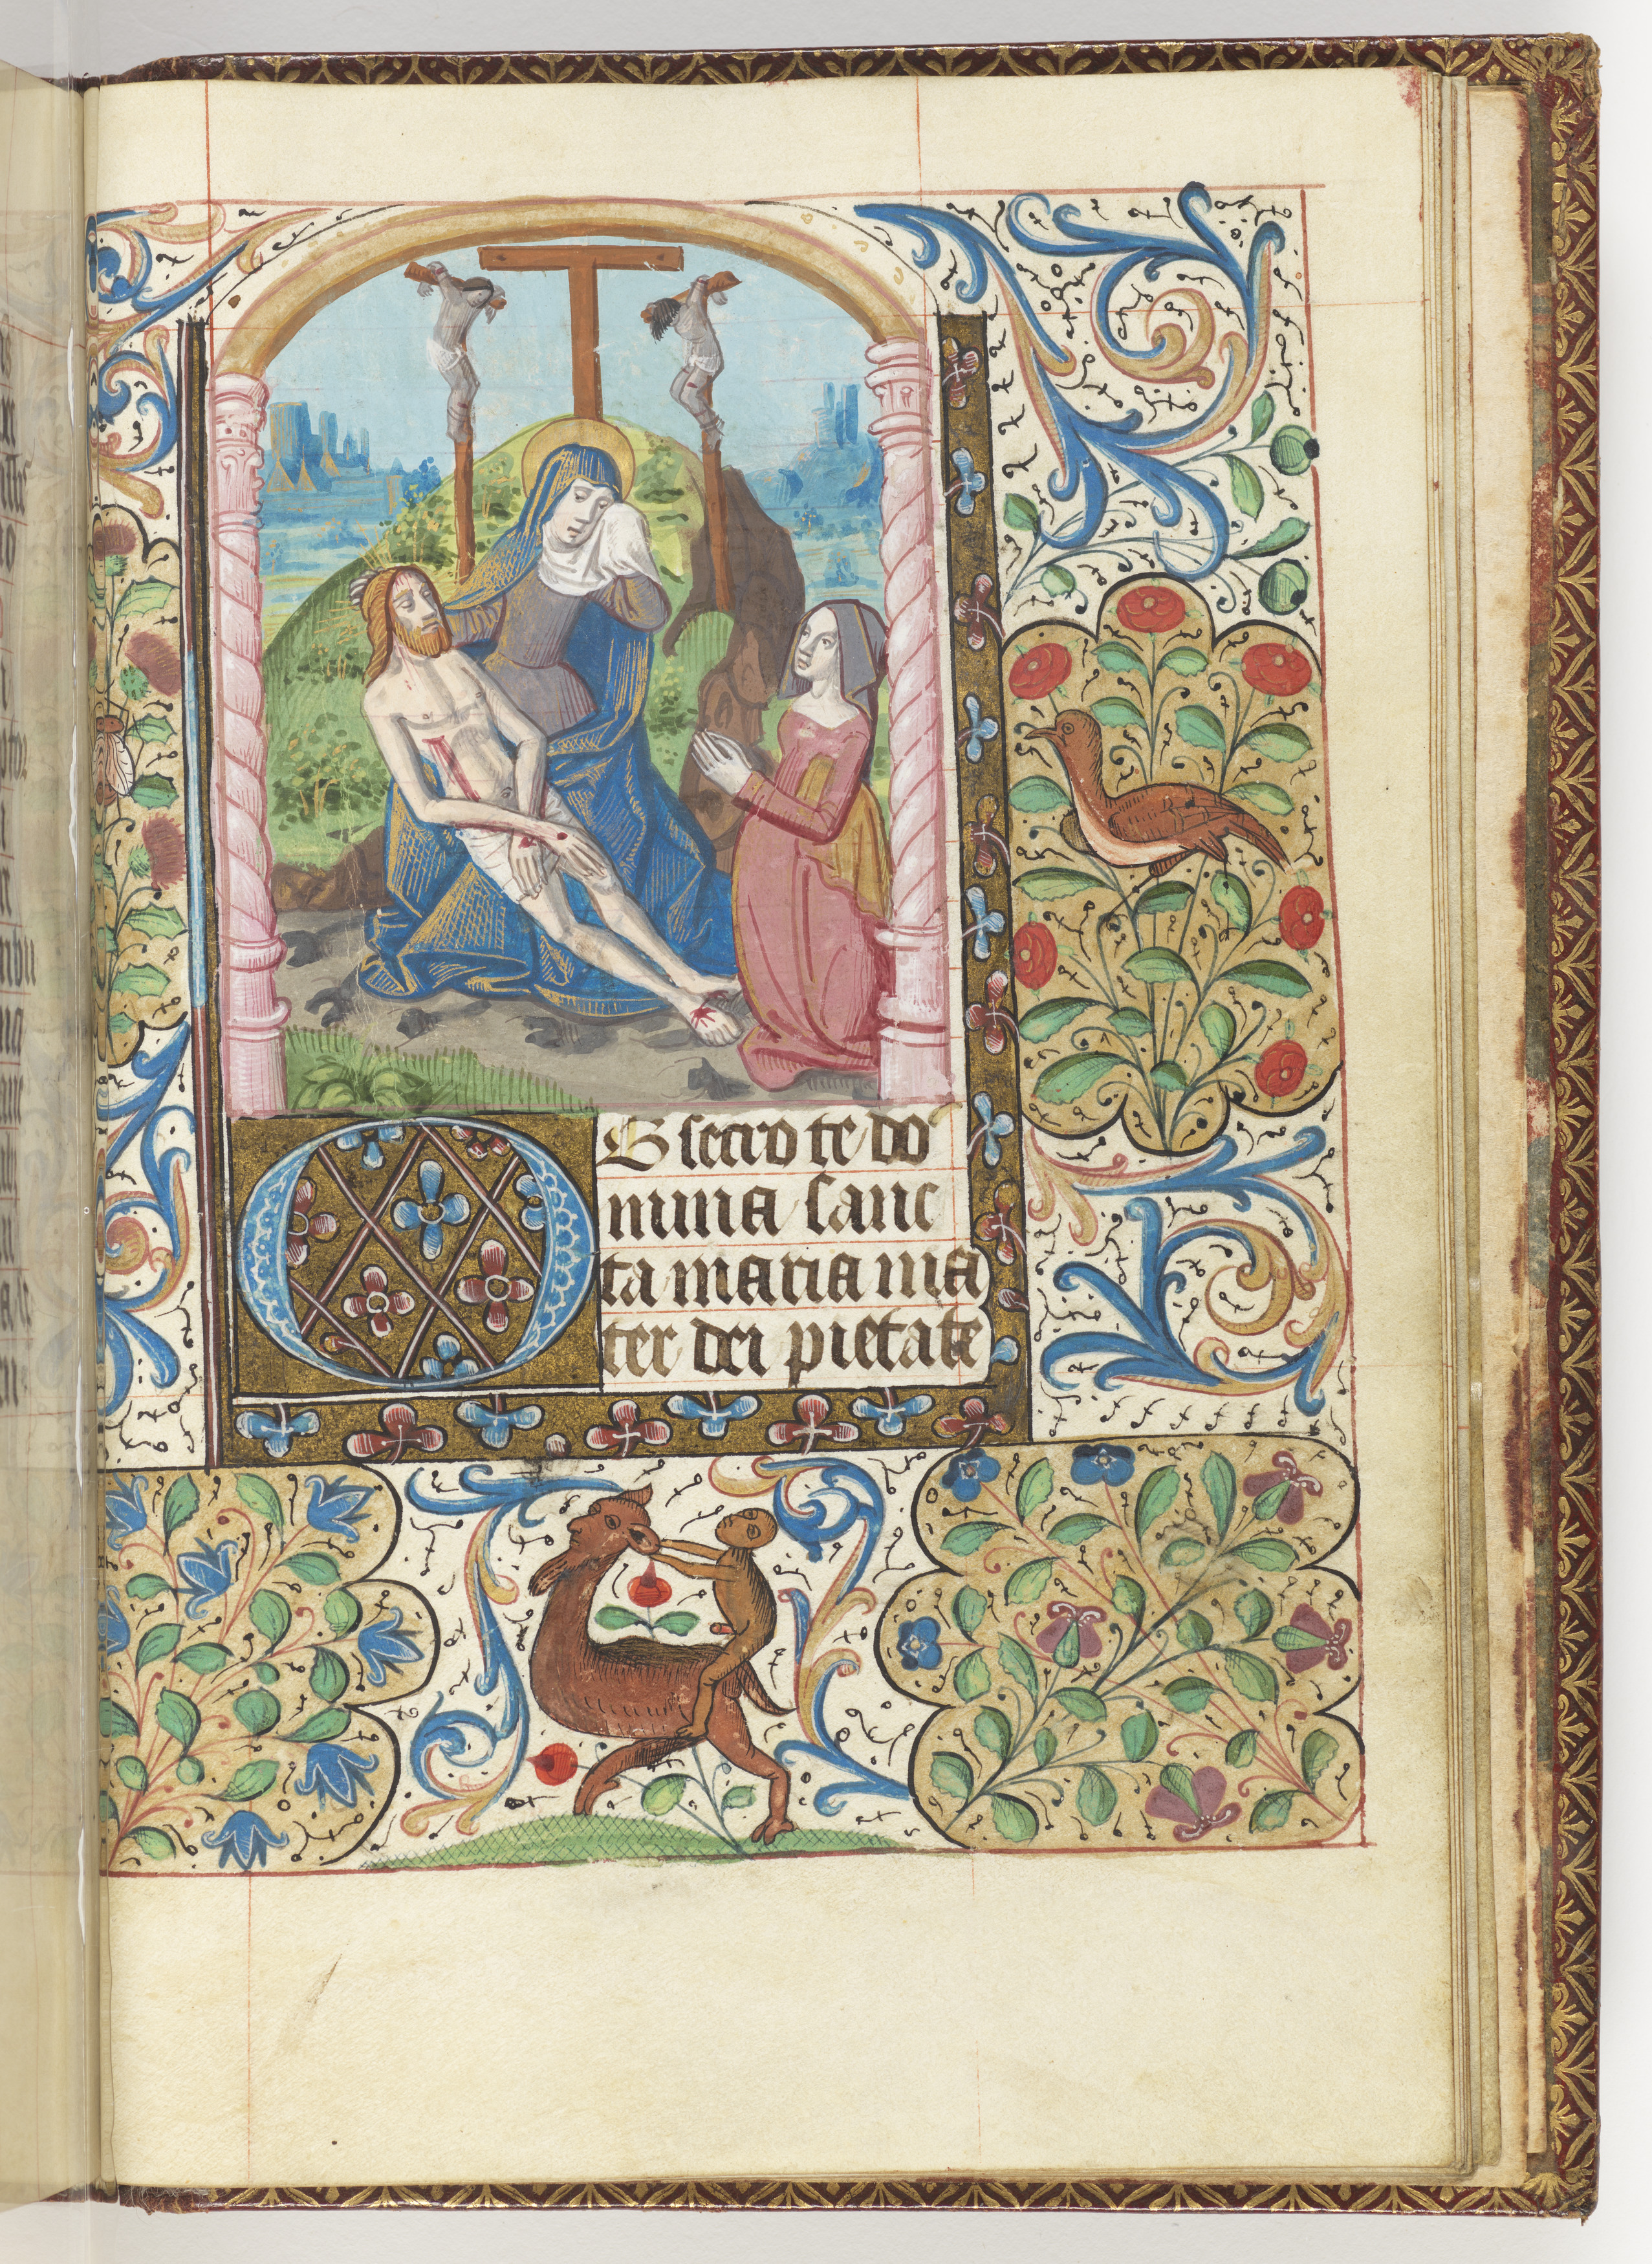 O Bsecro te do
mina sanc
ta maria ma
ter dei pietate